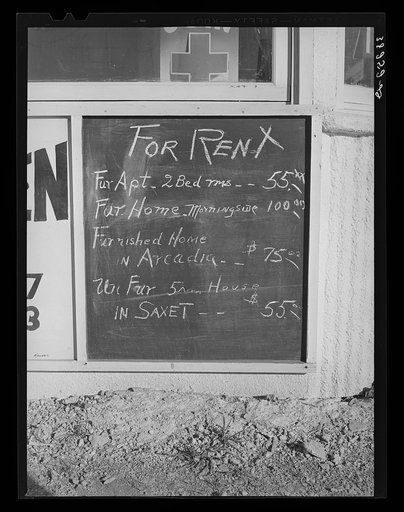 FOR RENT
Fur Apt - 2 Bed rms - - 55.xx
Fur Home Morningside 100 00
Furnished Home
IN Arcadia - - $75 00
Un Fur 5rm House
IN SAXET - - $55.00
EN
7
3